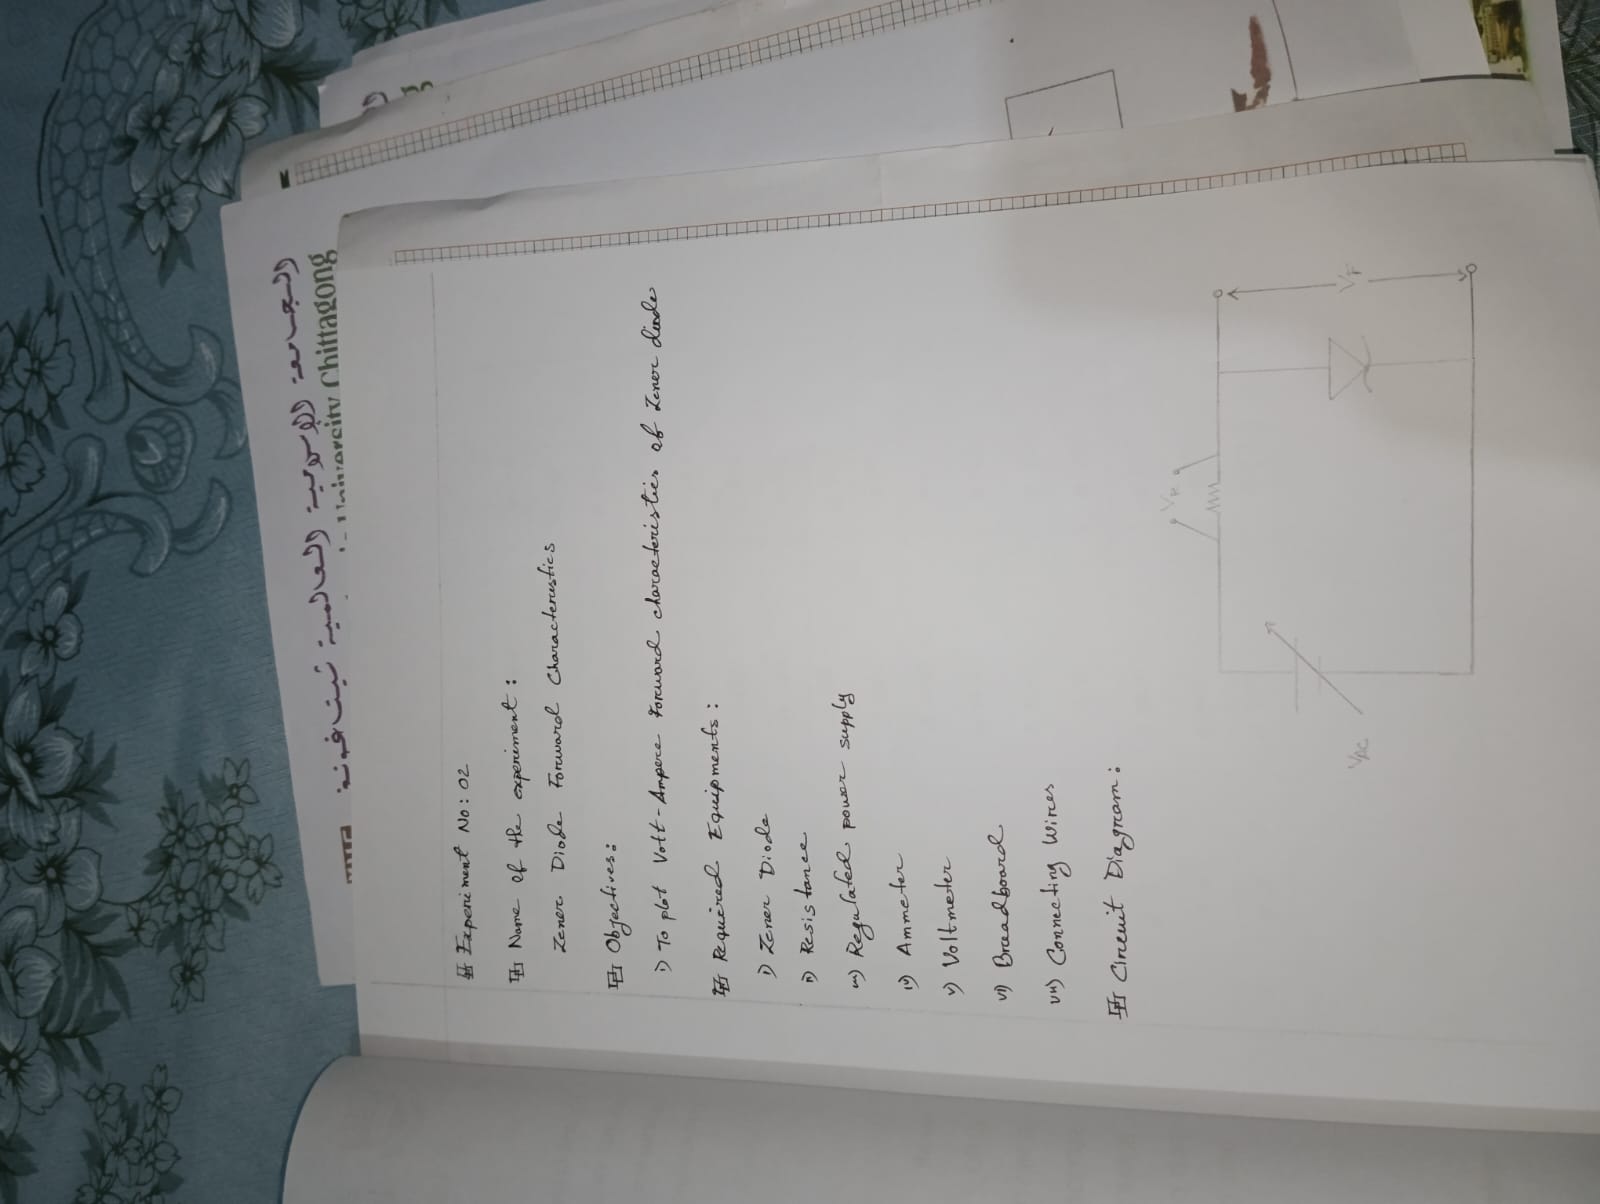 الجامعة الإسلامية العالمية شيتاغونغ
University Chittagong
# Experiment No: 02
# Name of the experiment:
Zener Diode Forward Characteristics
# Objectives:
i) To plot Volt-Ampere Forward characteristics of Zener diode
# Required Equipments:
i) Zener Diode
ii) Resistance
iii) Regulated power supply
iv) Ammeter
v) Voltmeter
vi) Breadboard
vii) Connecting Wires
# Circuit Diagram:
VR
VDC
VF